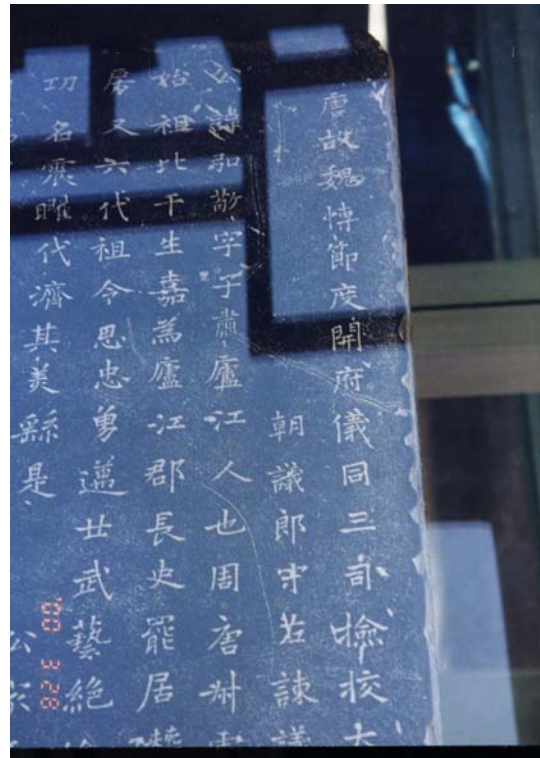 唐故魏博節度開府儀同三司檢挍大
朝議郎守右諫議
公諱弘敬字子肅廬江人也周唐
始祖比干生嘉為廬江郡長史罷居
居又六代祖令思忠勇邁世武藝絕
功名震曜代濟其美繇是
'00 3 28